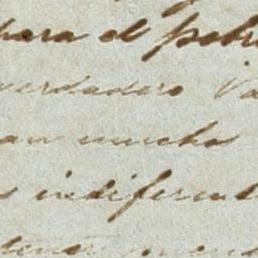 para el patri
verdadero Va
an mucho
s indiferent